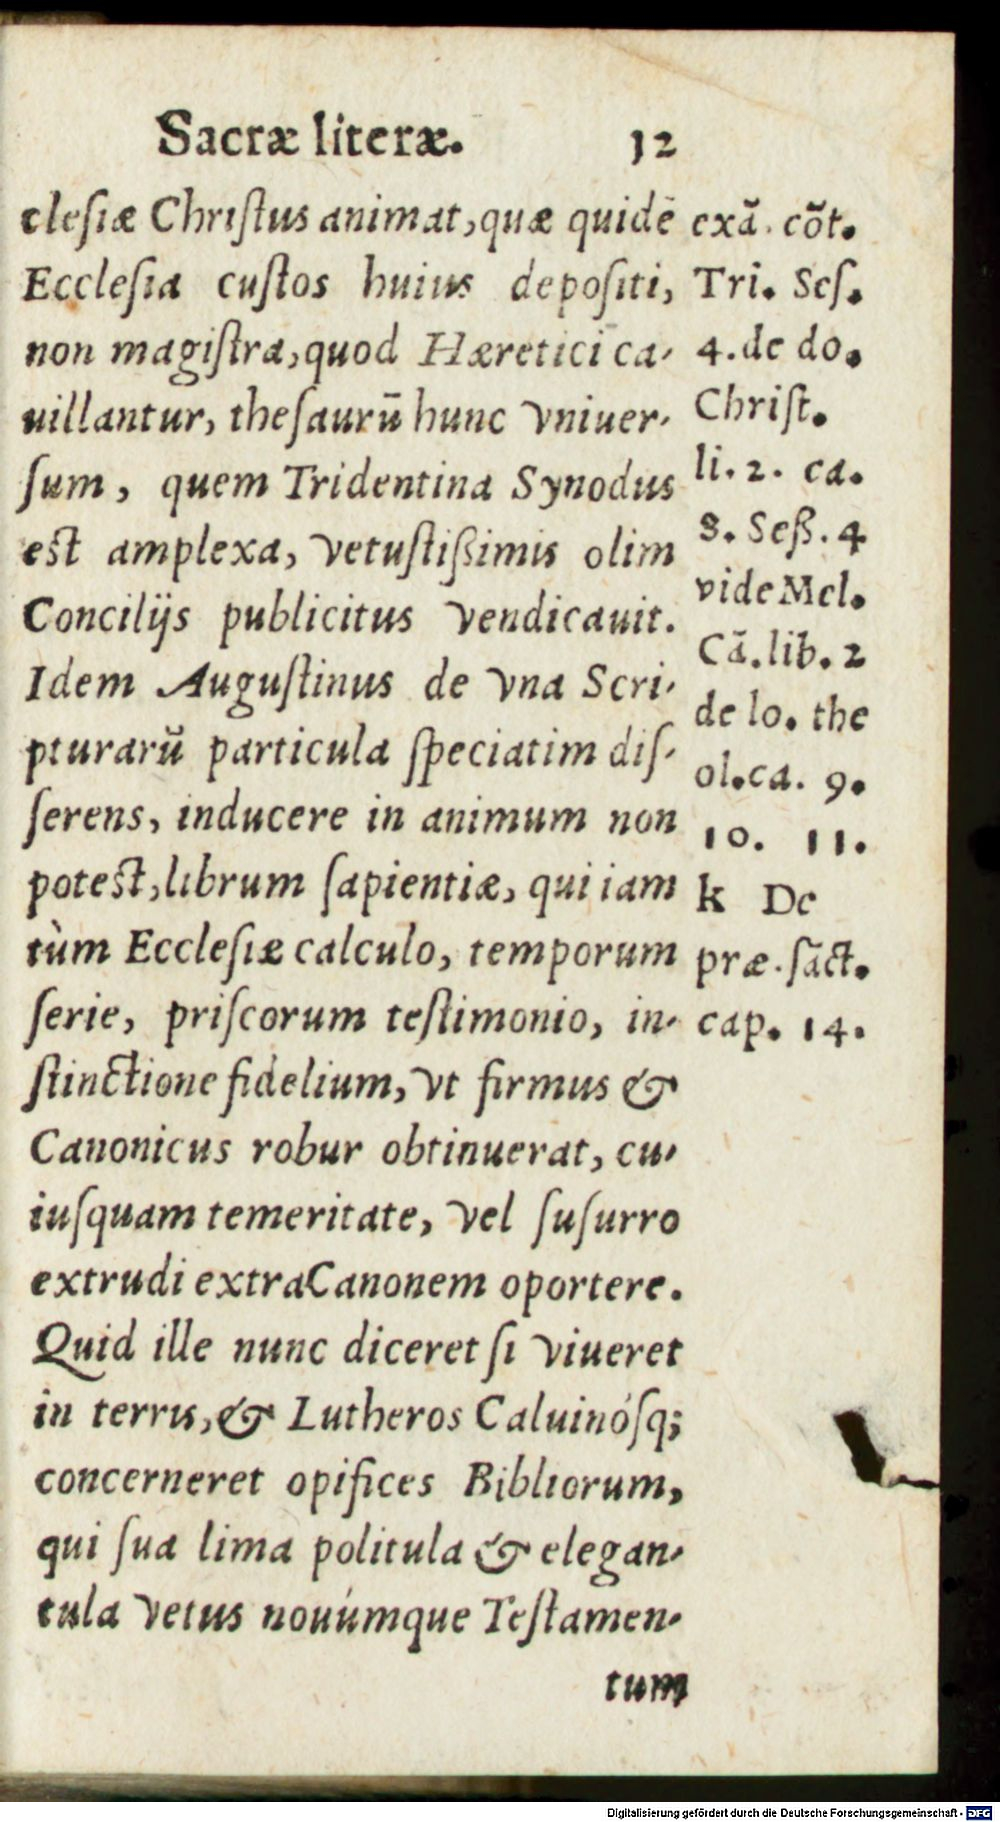 Sacræ literæ. 12
cleſiæ Chriſtus animat, quæ quidē
Eccleſia cuſtos huius depoſiti,
non magiſtra, quod Hæretici ca-
uillantur, theſaurū hunc vniuer-
ſum, quem Tridentina Synodus
est amplexa, vetuſtißimis olim
Concilijs publicitus vendicauit.
Idem Auguſtinus de vna Scri-
pturarū particula ſpeciatim diſ-
ſerens, inducere in animum non
potest, librum ſapientiæ, qui iam
tùm Eccleſiæ calculo, temporum
ſerie, priſcorum teſtimonio, in-
ſtinctione fidelium, vt firmus &
Canonicus robur obtinuerat, cu-
iuſquam temeritate, vel ſuſurro
extrudi extra Canonem oportere.
Quid ille nunc diceret ſi viueret
in terris, & Lutheros Caluinóſq;
concerneret opifices Bibliorum,
qui ſua lima politula & elegan-
tula vetus nouúmque Teſtamen-
tum
exã. cõt.
Tri. Seſ.
4. de do.
Chriſt.
li. 2. ca.
8. Seß. 4
vide Mel.
Cã. lib. 2
de lo. the
ol. ca. 9.
10. 11.
k De
præ. ſãct.
cap. 14.
Digitalisierung gefördert durch die Deutsche Forschungsgemeinschaft - DFG